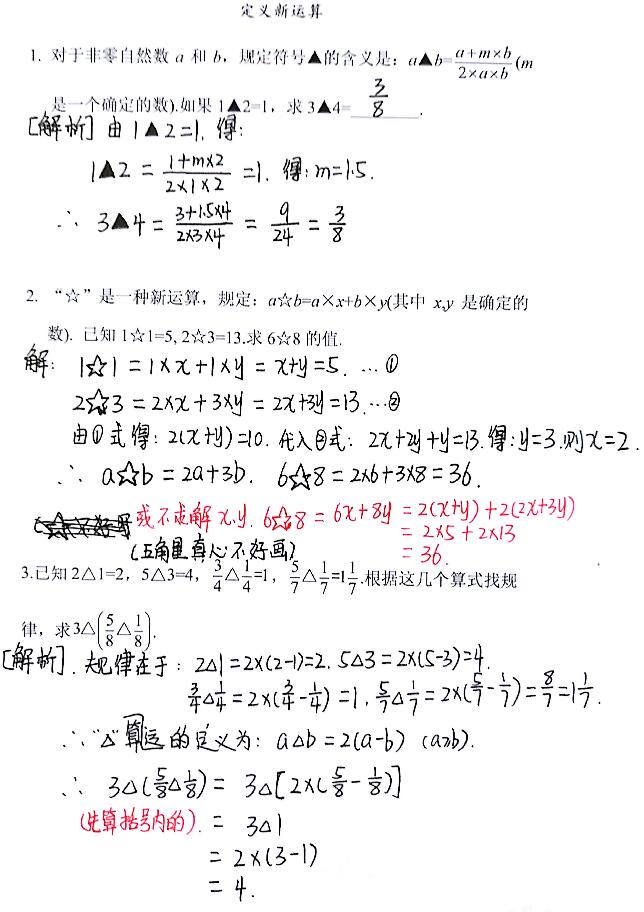 定义新运算
1. 对于非零自然数 a 和 b，规定符号▲的含义是：a▲b=\frac{a+m×b}{2×a×b}(m
是一个确定的数).如果 1▲2=1，求 3▲4=\frac{3}{8}.
[解析] 由 1▲2=1. 得：
1▲2 = \frac{1+m×2}{2×1×2} =1. 得：m=1.5.
∴ 3▲4 = \frac{3+1.5×4}{2×3×4} = \frac{9}{24} = \frac{3}{8}
2. “☆”是一种新运算，规定：a☆b=a×x+b×y(其中 x,y 是确定的
数). 已知 1☆1=5, 2☆3=13.求 6☆8 的值.
解： 1☆1 = 1×x+1×y = x+y=5. …①
2☆3 = 2×x+3×y = 2x+3y=13…②
由①式得：2(x+y)=10. 代入②式： 2x+2y+y=13.得：y=3.则x=2.
∴ a☆b = 2a+3b. 6☆8=2×6+3×8=36.
或不求解x.y. 6☆8 = 6x+8y = 2(x+y)+2(2x+3y)
= 2×5+2×13
(五角星真心不好画) = 36.
3.已知 2△1=2，5△3=4，\frac{3}{4}△\frac{1}{4}=1，\frac{5}{7}△\frac{1}{7}=1\frac{1}{7}.根据这几个算式找规
律，求3△(\frac{5}{8}△\frac{1}{8}).
[解析]. 规律在于：2△1=2×(2-1)=2. 5△3=2×(5-3)=4.
\frac{3}{4}△\frac{1}{4}=2×(\frac{3}{4}-\frac{1}{4})=1. \frac{5}{7}△\frac{1}{7}=2×(\frac{5}{7}-\frac{1}{7})=\frac{8}{7}=1\frac{1}{7}.
∴“△”算运的定义为：a△b=2(a-b) (a>b).
∴ 3△(\frac{5}{8}△\frac{1}{8}) = 3△[2×(\frac{5}{8}-\frac{1}{8})]
(先算括号内的). = 3△1
= 2×(3-1)
= 4.